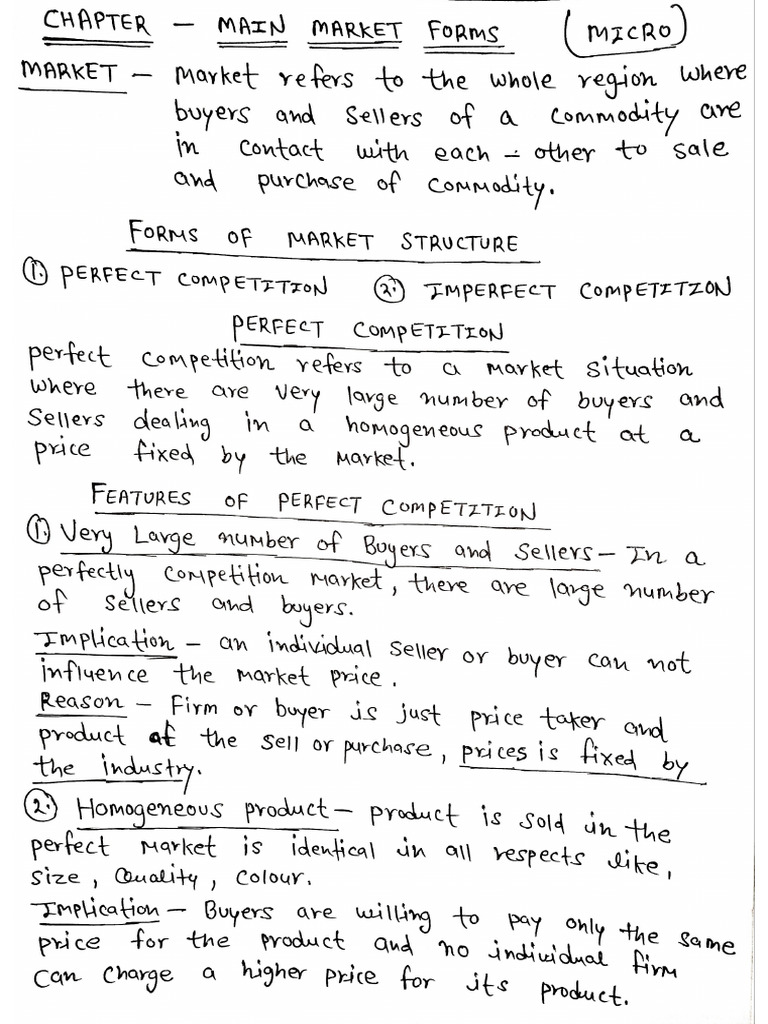 CHAPTER - MAIN MARKET FORMS (MICRO)
MARKET - Market refers to the whole region where
buyers and sellers of a commodity are
in contact with each-other to sale
and purchase of commodity.
FORMS OF MARKET STRUCTURE
1. PERFECT COMPETITION 2. IMPERFECT COMPETITION
PERFECT COMPETITION
perfect competition refers to a market situation
where there are very large number of buyers and
sellers dealing in a homogeneous product at a
price fixed by the market.
FEATURES OF PERFECT COMPETITION
1. Very Large number of Buyers and Sellers - In a
perfectly competition market, there are large number
of sellers and buyers.
Implication - an individual seller or buyer can not
influence the market price.
Reason - Firm or buyer is just price taker and
product at the sell or purchase, prices is fixed by
the industry.
2. Homogeneous product - product is sold in the
perfect market is identical in all respects like,
size, Quality, colour.
Implication - Buyers are willing to pay only the same
price for the product and no individual firm
can charge a higher price for its product.